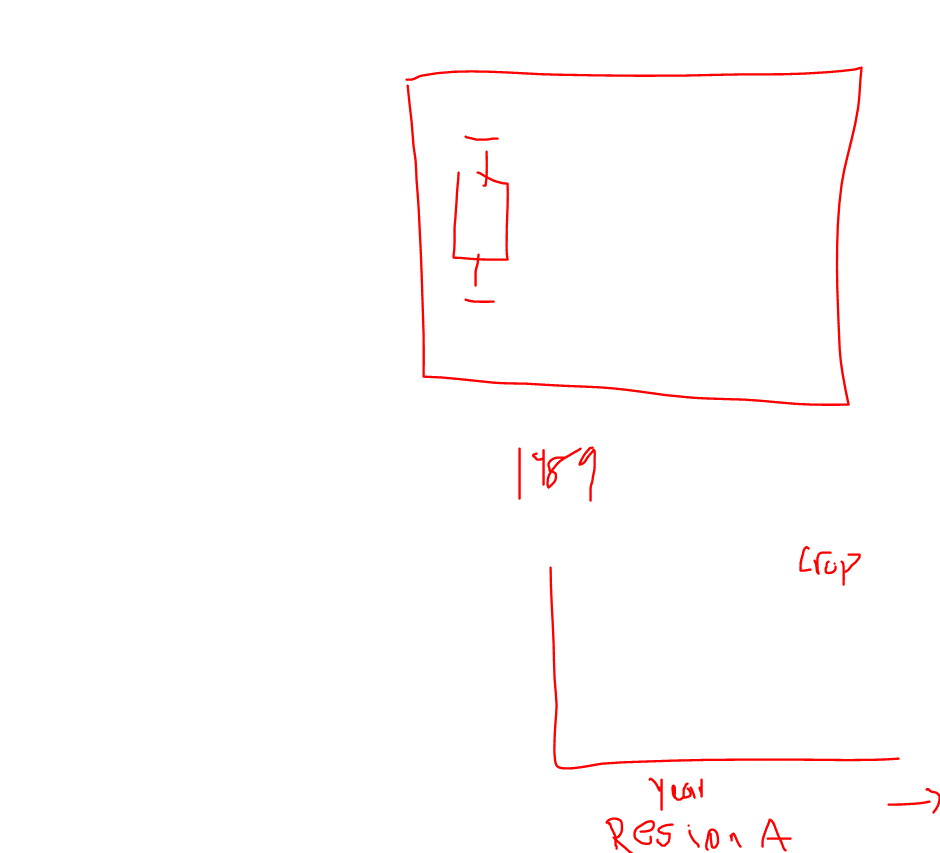 1989
Crop
Year
Resion A